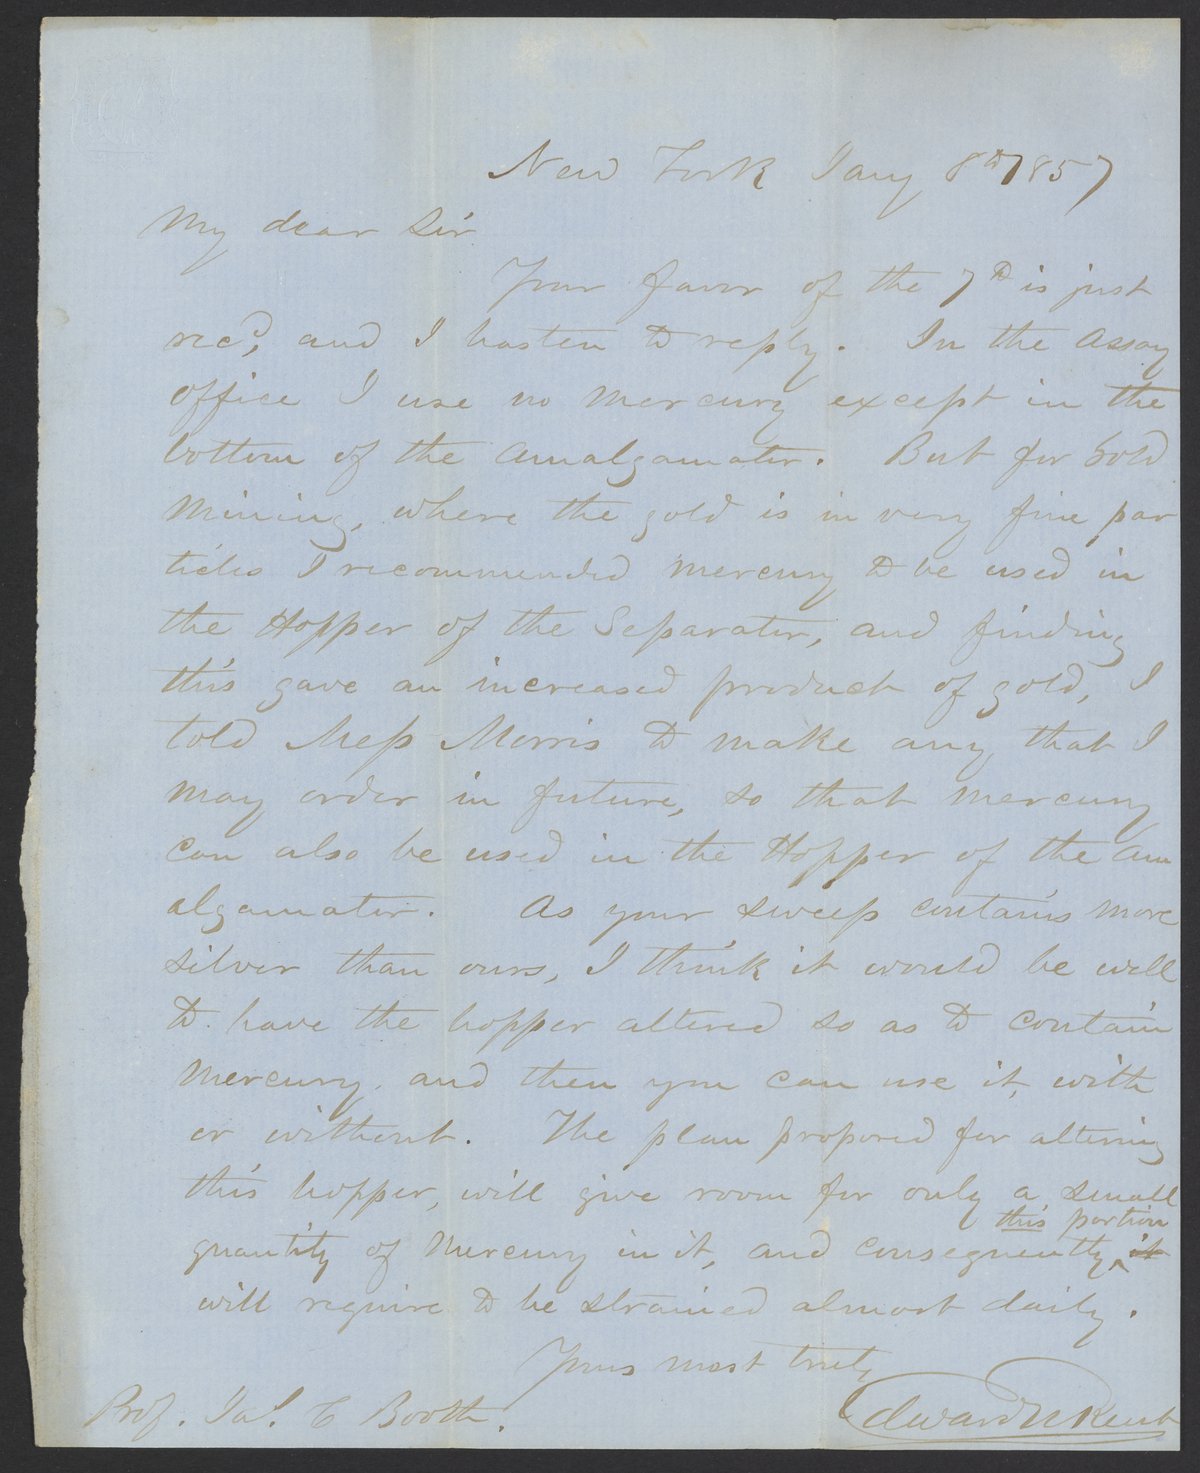 New York Jany 8th 1857
My dear Sir
Your favor of the 7th is just
recd, and I hasten to reply. In the Assay
office I use no mercury except in the
bottom of the Amalgamater. But for Gold
Mining, where the gold is in very fine par
ticles I recommended mercury to be used in
the Hopper of the Separater, and finding
this gave an increased product of gold, I
told Mess Morris to make any that I
may order in future, so that mercury
can also be used in the Hopper of the am
algamater. As your sweep contains more
silver than ours, I think it would be well
to have the hopper altered so as to contain
mercury, and then you can use it, with
or without. The plan proposed for altering
this hopper, will give room for only a small
this portion
quantity of Mercury in it, and consequently it
will require to be strained almost daily.
Yours most truly
Edward N Kent
Prof. Jas. C Booth.